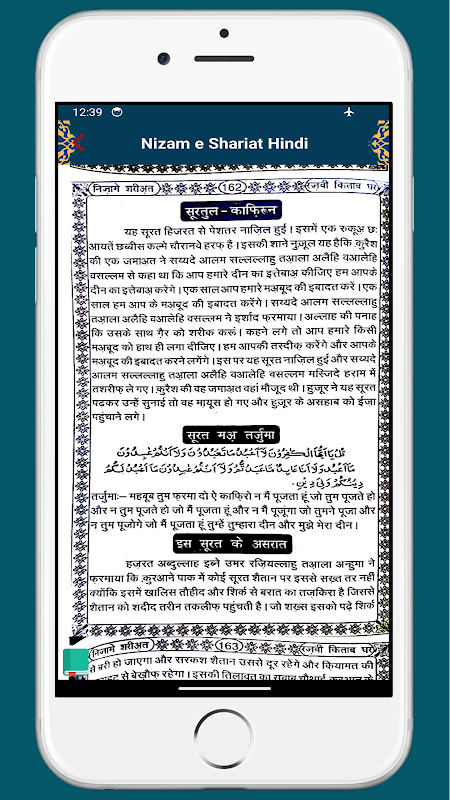 12:39
Nizam e Shariat Hindi
निज़ामे शरीअत 162 रज़वी किताब घर
सूरतुल-काफ़िरून
यह सूरत हिजरत से पेशतर नाज़िल हुई। इसमें एक रुकूअ़ छः
आयतें छब्बीस कल्मे चौरानवे हरफ़ हैं। इसकी शाने नुज़ूल यह हैकि कु़रैश
की एक जमाअत ने सय्यदे आलम सल्लल्लाहु तआ़ला अलैहि वआलेहि
वसल्लम से कहा था कि आप हमारे दीन का इत्तेबाअ़ कीजिए हम आपके
दीन का इत्तेबाअ़ करेंगे। एक साल आप हमारे मअ़बूद की इबादत करें। एक
साल हम आप के मअ़बूद की इबादत करेंगे। सय्यदे आलम सल्लल्लाहु
तआ़ला अलैहि वआलेहि वसल्लम ने इर्शाद फ़रमाया। अल्लाह की पनाह
कि उसके साथ ग़ैर को शरीक करूं। कहने लगे तो आप हमारे किसी
मअ़बूद को हाथ ही लगा दीजिए। हम आपकी तस्दीक़ करेंगे और आपके
मअ़बूद की इबादत करने लगेंगे। इस पर यह सूरत नाज़िल हुई और सय्यदे
आलम सल्लल्लाहु तआ़ला अलैहि वआलेहि वसल्लम मस्जिदे हराम में
तशरीफ़ ले गए। कु़रैश की वह जमाअत वहां मौजूद थी। हुज़ूर ने यह सूरत
पढ़कर उन्हें सुनाई तो वह मायूस हो गए और हुज़ूर के असहाब को ईज़ा
पहुंचाने लगे।
सूरत मअ़ तर्जुमा
قُلْ يَا أَيُّهَا الْكَافِرُونَ لَا أَعْبُدُ مَا تَعْبُدُونَ وَلَا أَنْتُمْ عَابِدُونَ
مَا أَعْبُدُ وَلَا أَنَا عَابِدٌ مَا عَبَدْتُمْ وَلَا أَنْتُمْ عَابِدُونَ مَا أَعْبُدُ لَكُمْ
دِينُكُمْ وَلِيَ دِينِ
तर्जुमाः– महबूब तुम फ़रमा दो ऐ काफ़िरो न मैं पूजता हूं जो तुम पूजते हो
और न तुम पूजते हो जो मैं पूजता हूं और न मैं पूजूंगा जो तुमने पूजा और
न तुम पूजोगे जो मैं पूजता हूं तुम्हें तुम्हारा दीन और मुझे मेरा दीन।
इस सूरत के असरात
हज़रत अब्दुल्लाह इब्ने उमर रज़ियल्लाहु तआ़ला अन्हुमा ने
फ़रमाया कि कु़रआने पाक में कोई सूरत शैतान पर इससे सख़्त तर नहीं
क्योंकि इसमें ख़ालिस तौहीद और शिर्क से बरात का तज़किरा है जिससे
शैतान को शदीद तरीन तकलीफ़ पहुंचती है। जो शख़्स इसको पढ़े शिर्क
निज़ामे शरीअत 163 रज़वी किताब घर
से बरी हो जाएगा और सरकश शैतान उससे दूर रहेंगे और कियामत की
से बेख़ौफ़ रहेगा। इसकी तिलावत का सवाब चौथाई